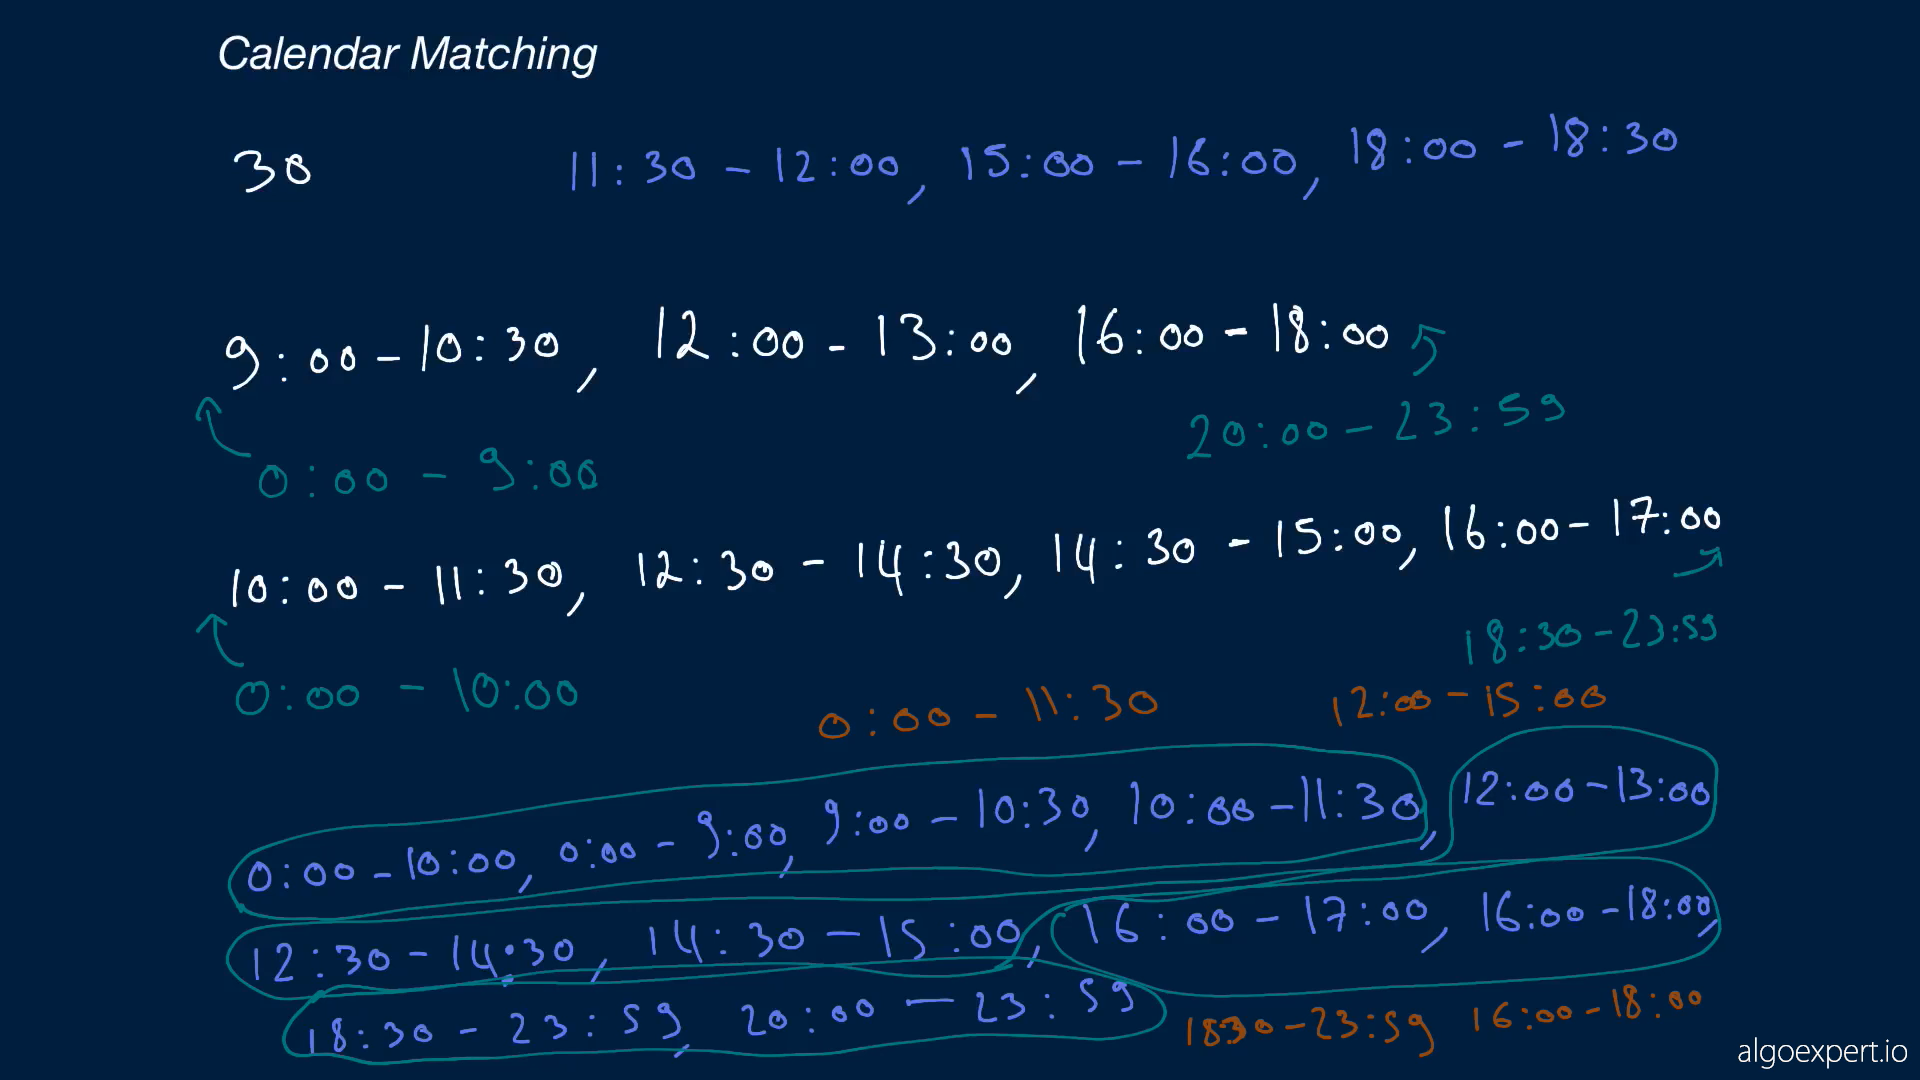 Calendar Matching
30
11:30 - 12:00, 15:00 - 16:00, 18:00 - 18:30
9:00 - 10:30, 12:00 - 13:00, 16:00 - 18:00
20:00 - 23:59
0:00 - 9:00
10:00 - 11:30, 12:30 - 14:30, 14:30 - 15:00, 16:00 - 17:00
18:30 - 23:59
0:00 - 10:00
0:00 - 11:30
12:00 - 15:00
0:00 - 10:00, 0:00 - 9:00, 9:00 - 10:30, 10:00 - 11:30, 12:00 - 13:00
12:30 - 14:30, 14:30 - 15:00, 16:00 - 17:00, 16:00 - 18:00,
18:30 - 23:59, 20:00 - 23:59
1830 - 23:59
16:00 - 18:00
algoexpert.io